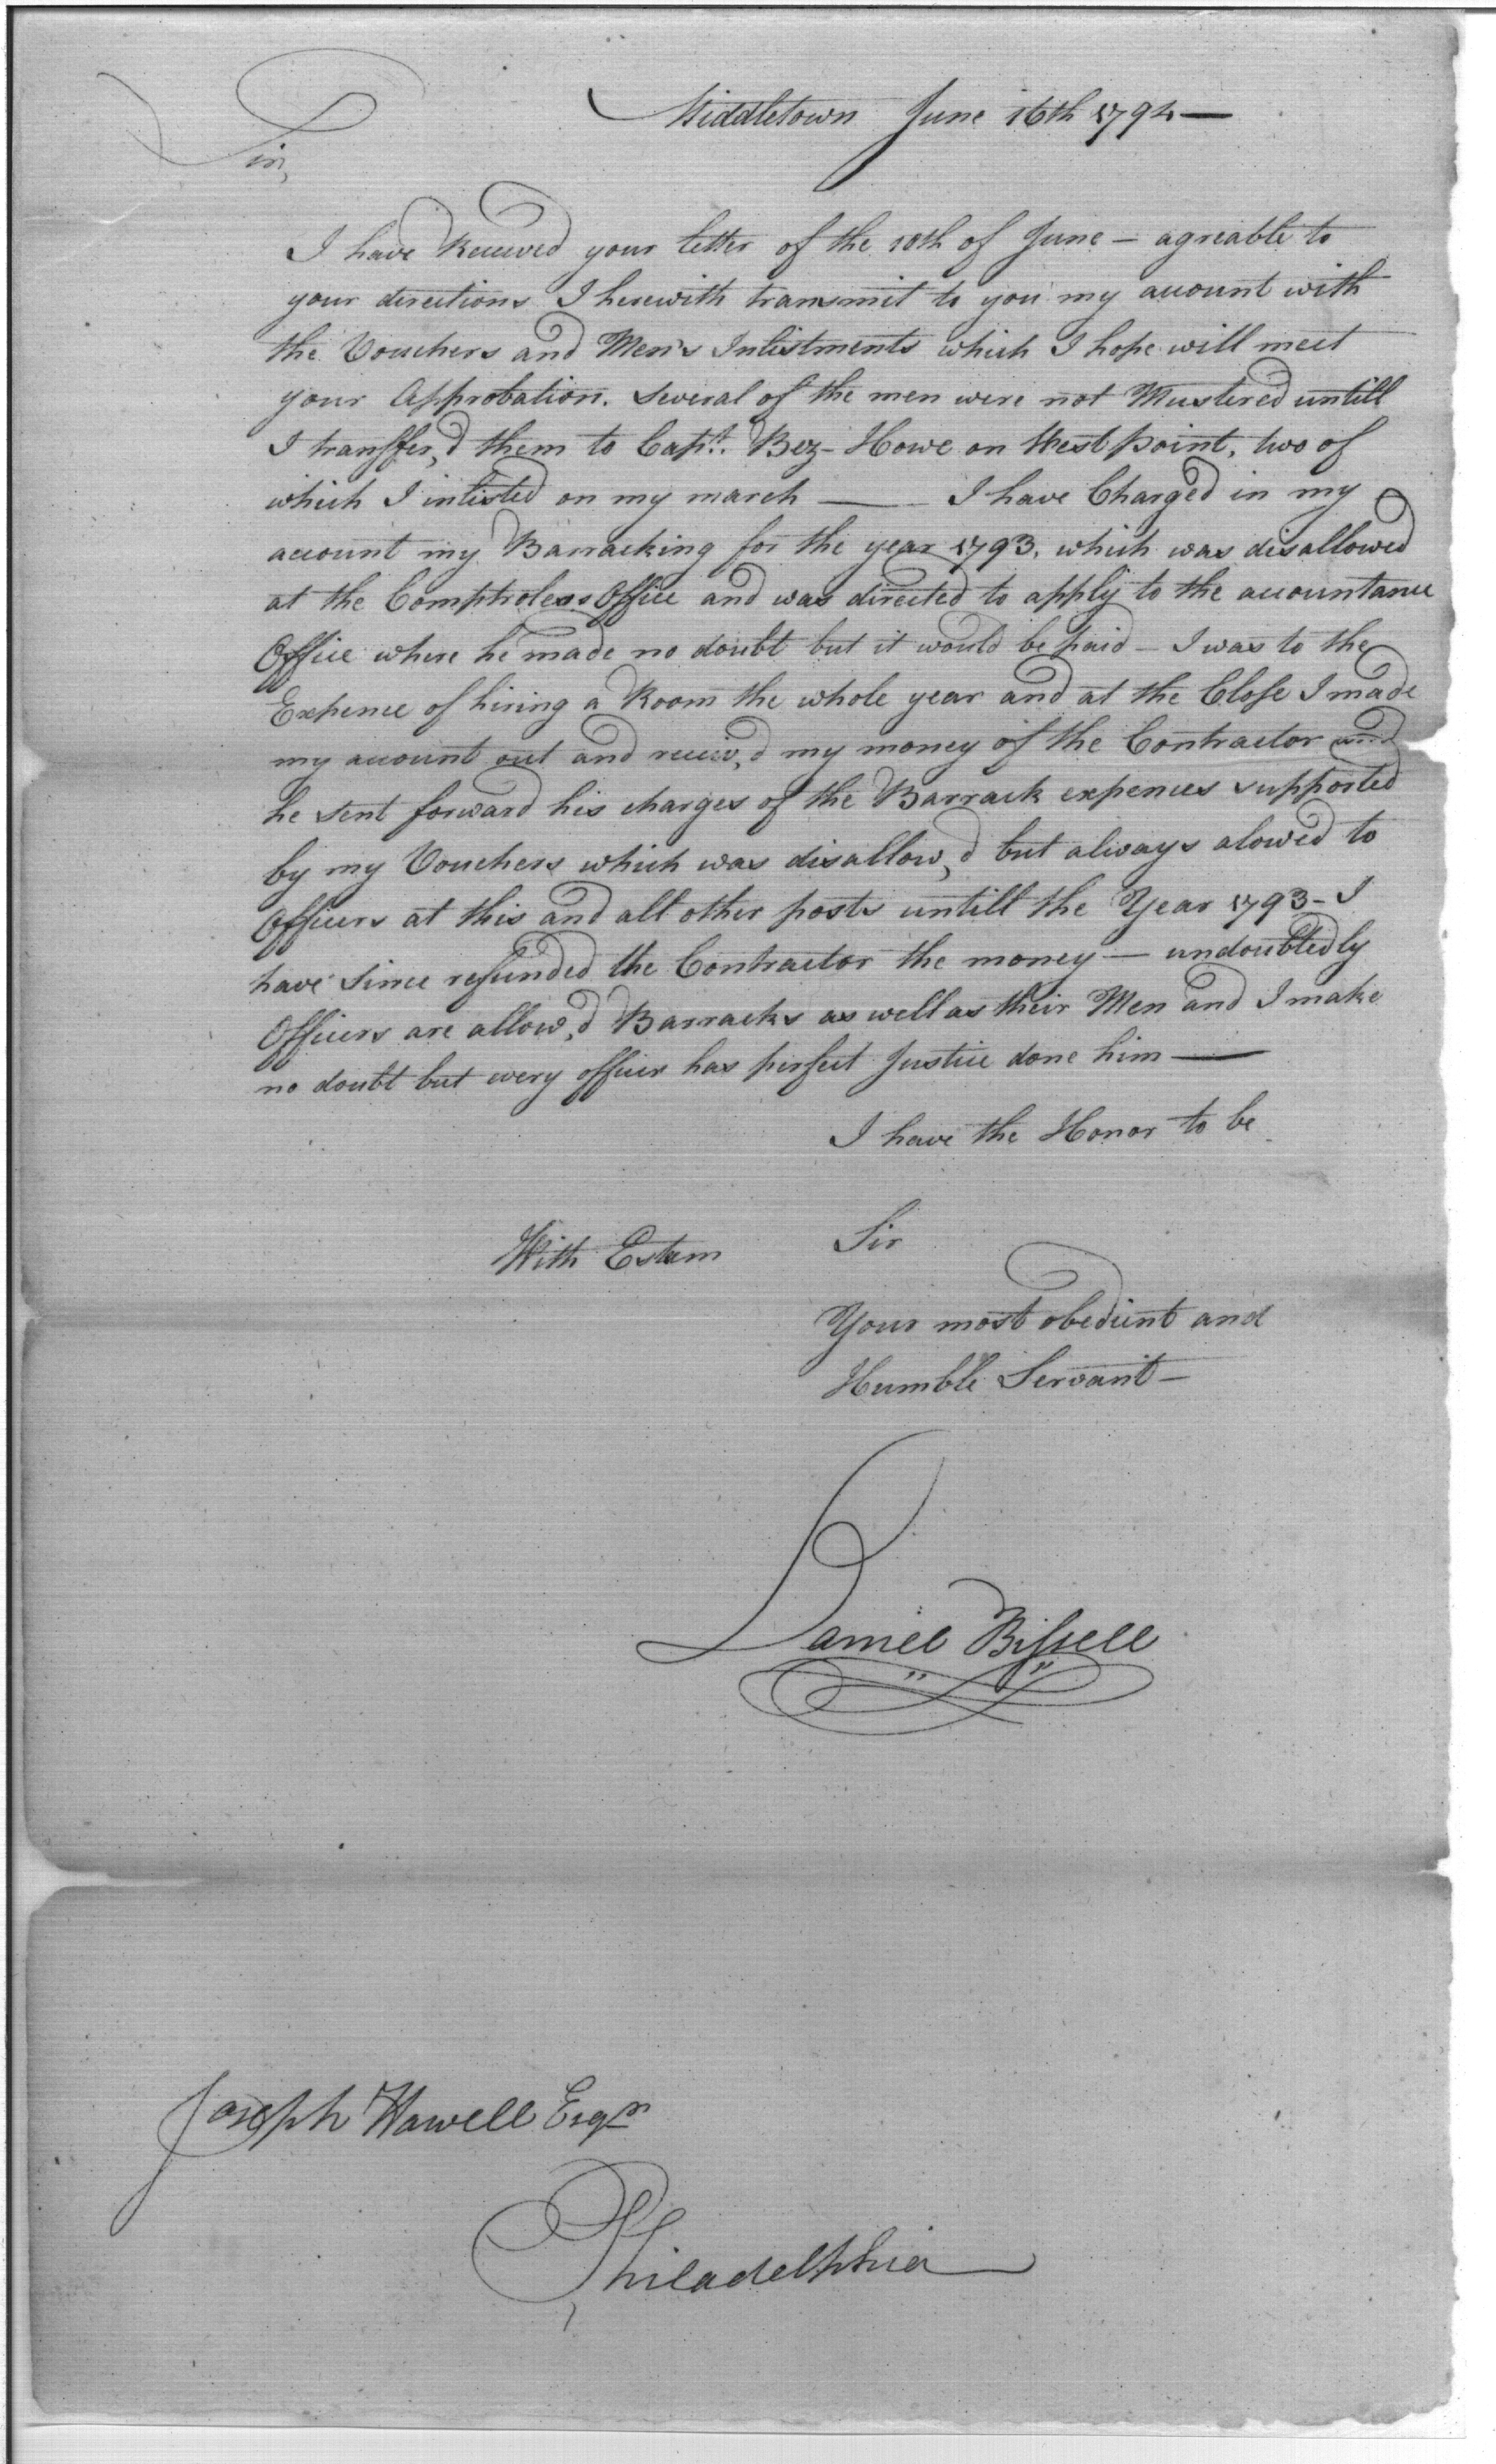 Middletown June 16th 1794—
Sir,
I have Received your letter of the 10th of June – agreable to
your directions I herewith transmit to you my account with
the Vouchers and Men's Inlistments which I hope will meet
your Approbation. Several of the men were not Mustered untill
I transffer,d them to Capt. Bez– Howe on West point, two of
which I inlisted on my march —— I have Charged in my
account my Barracking for the year 1793, which was disallowed
at the Comptrolers Office and was directed to apply to the accountance
Office where he made no doubt but it would be paid – I was to the
Expence of hiring a Room the whole year and at the Close I made
my account out and receiv,d my money of the Contractor and
he sent forward his charges of the Barrack expences supported
by my Vouchers which was disallow,d but always alowed to
Officers at this and all other posts untill the Year 1793– I
have since refunded the Contractor the money — undoubtedly
Officers are allow,d Barracks as well as their Men and I make
no doubt but every officer has perfect Justice done him ——
I have the Honor to be
Sir
With Esteem
Your most obedient and
Humble Servant–
Daniel Bissell
Joseph Howell Esqr
Philadelphia